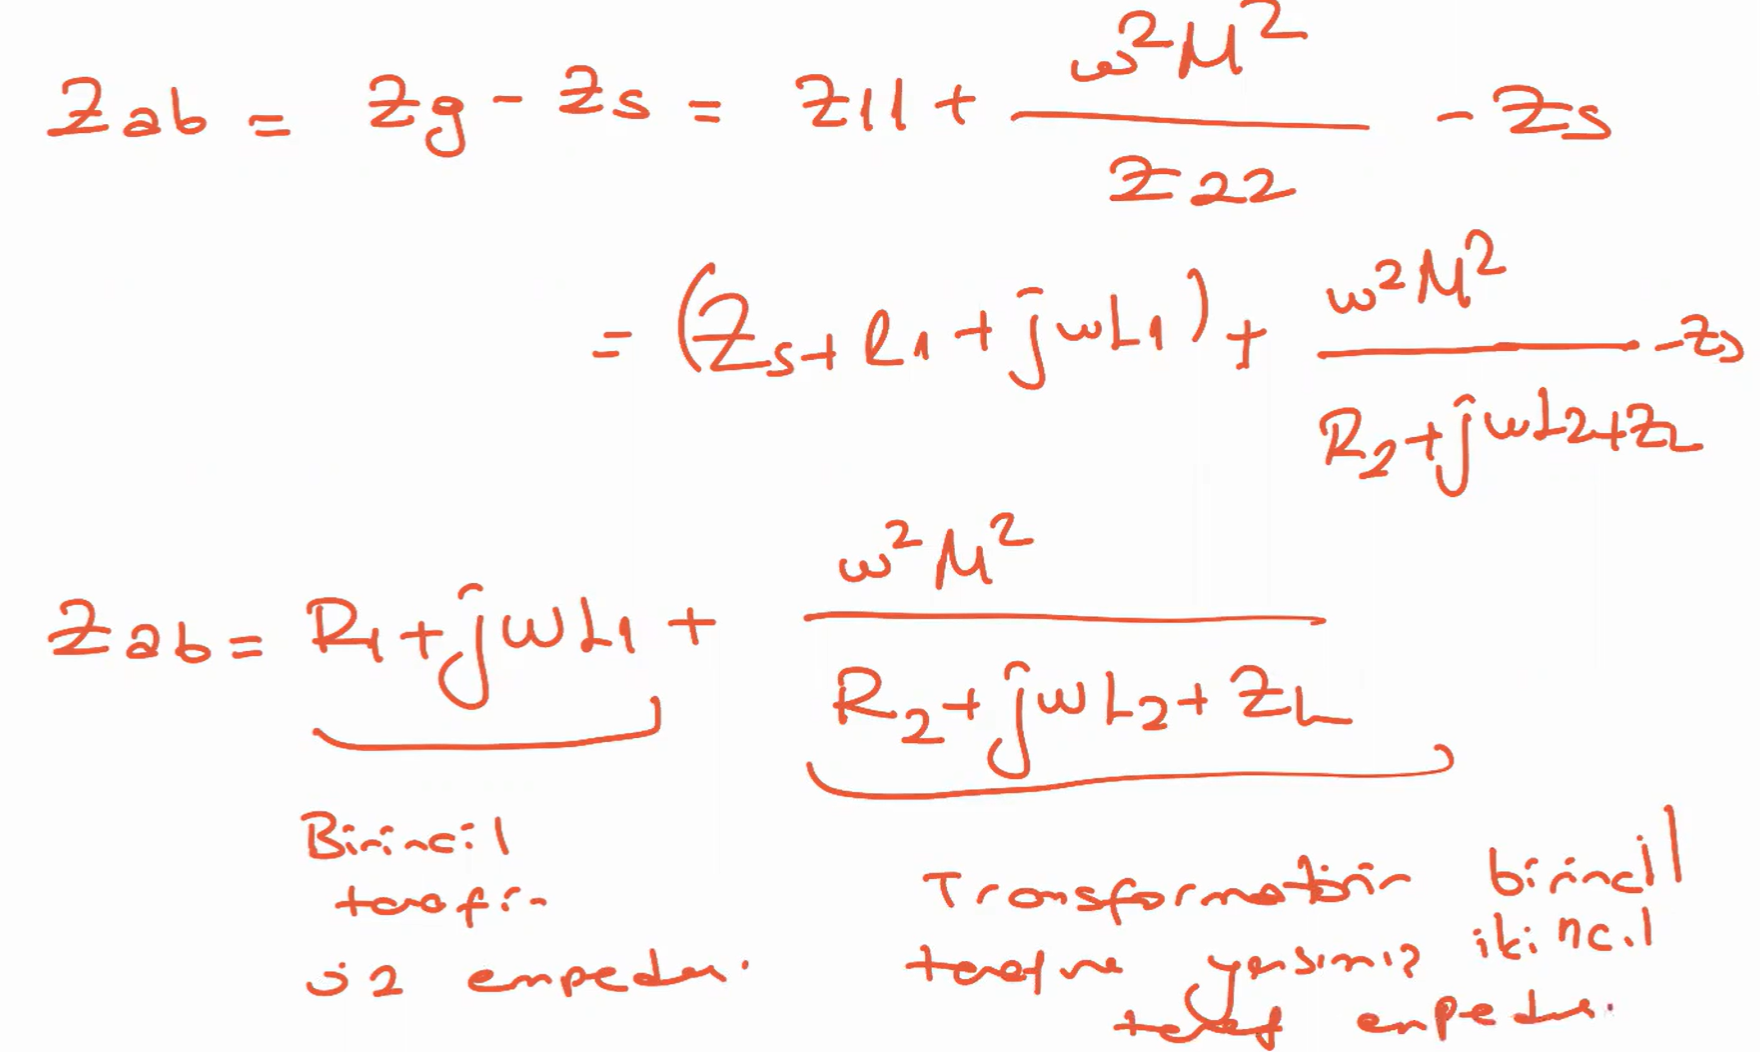 Zab = Zg - Zs = Z11 + ω²M² / Z22 - Zs
= (Zs + R1 + jωL1) + ω²M² / R2 + jωL2 + ZL - Zs
Zab = R1 + jωL1 + ω²M² / R2 + jωL2 + ZL
Birincil
tarafın
öz empedan.
Transformatörün birincil
tarafına yansımış ikincil
taraf empedan.